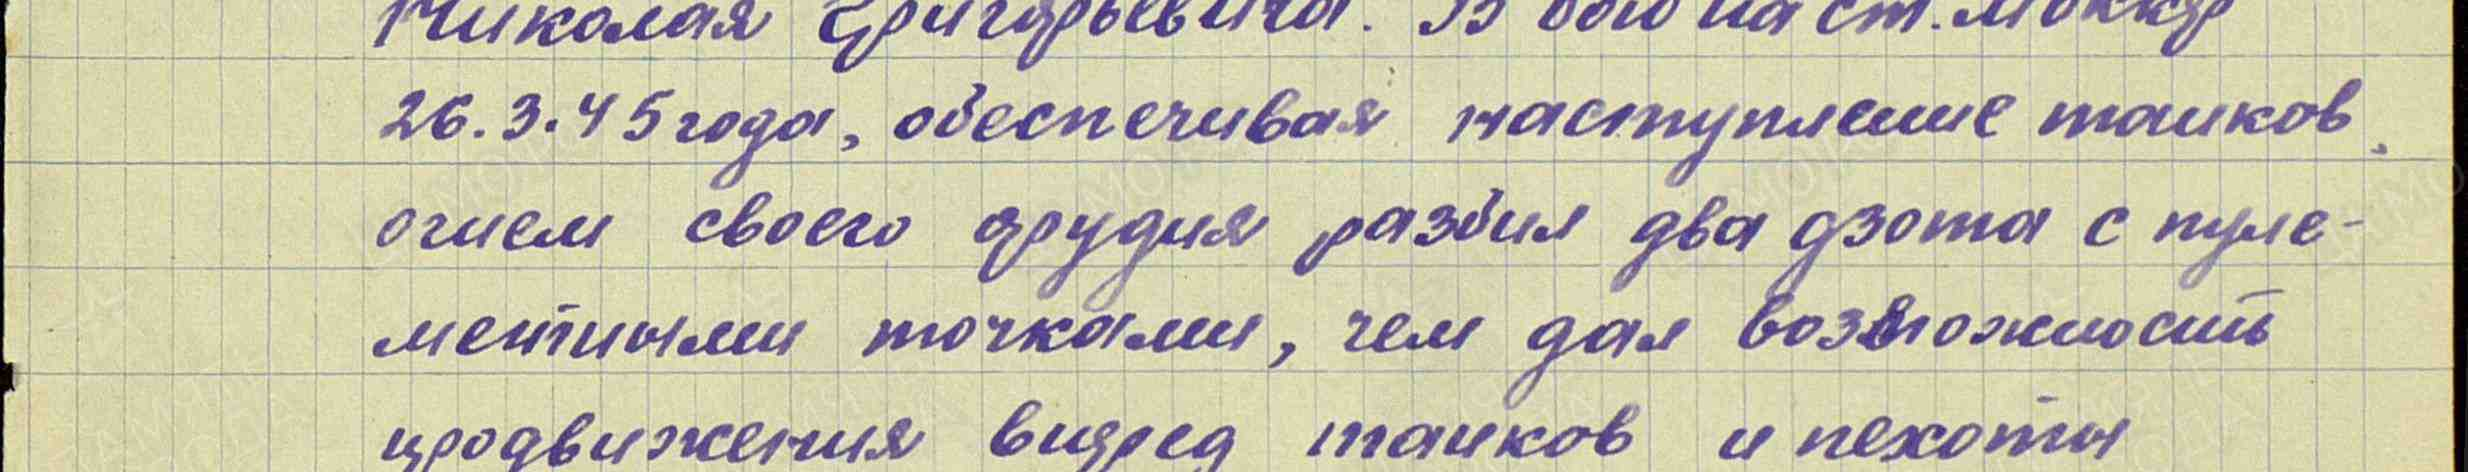 Николая Григорьевича. В бою на ст. Моккер
26.3.45 года, обеспечивая наступление танков
огнем своего орудия разбил два дзота с пуле-
метными точками, чем дал возможность
продвижения вперед танков и пехоты